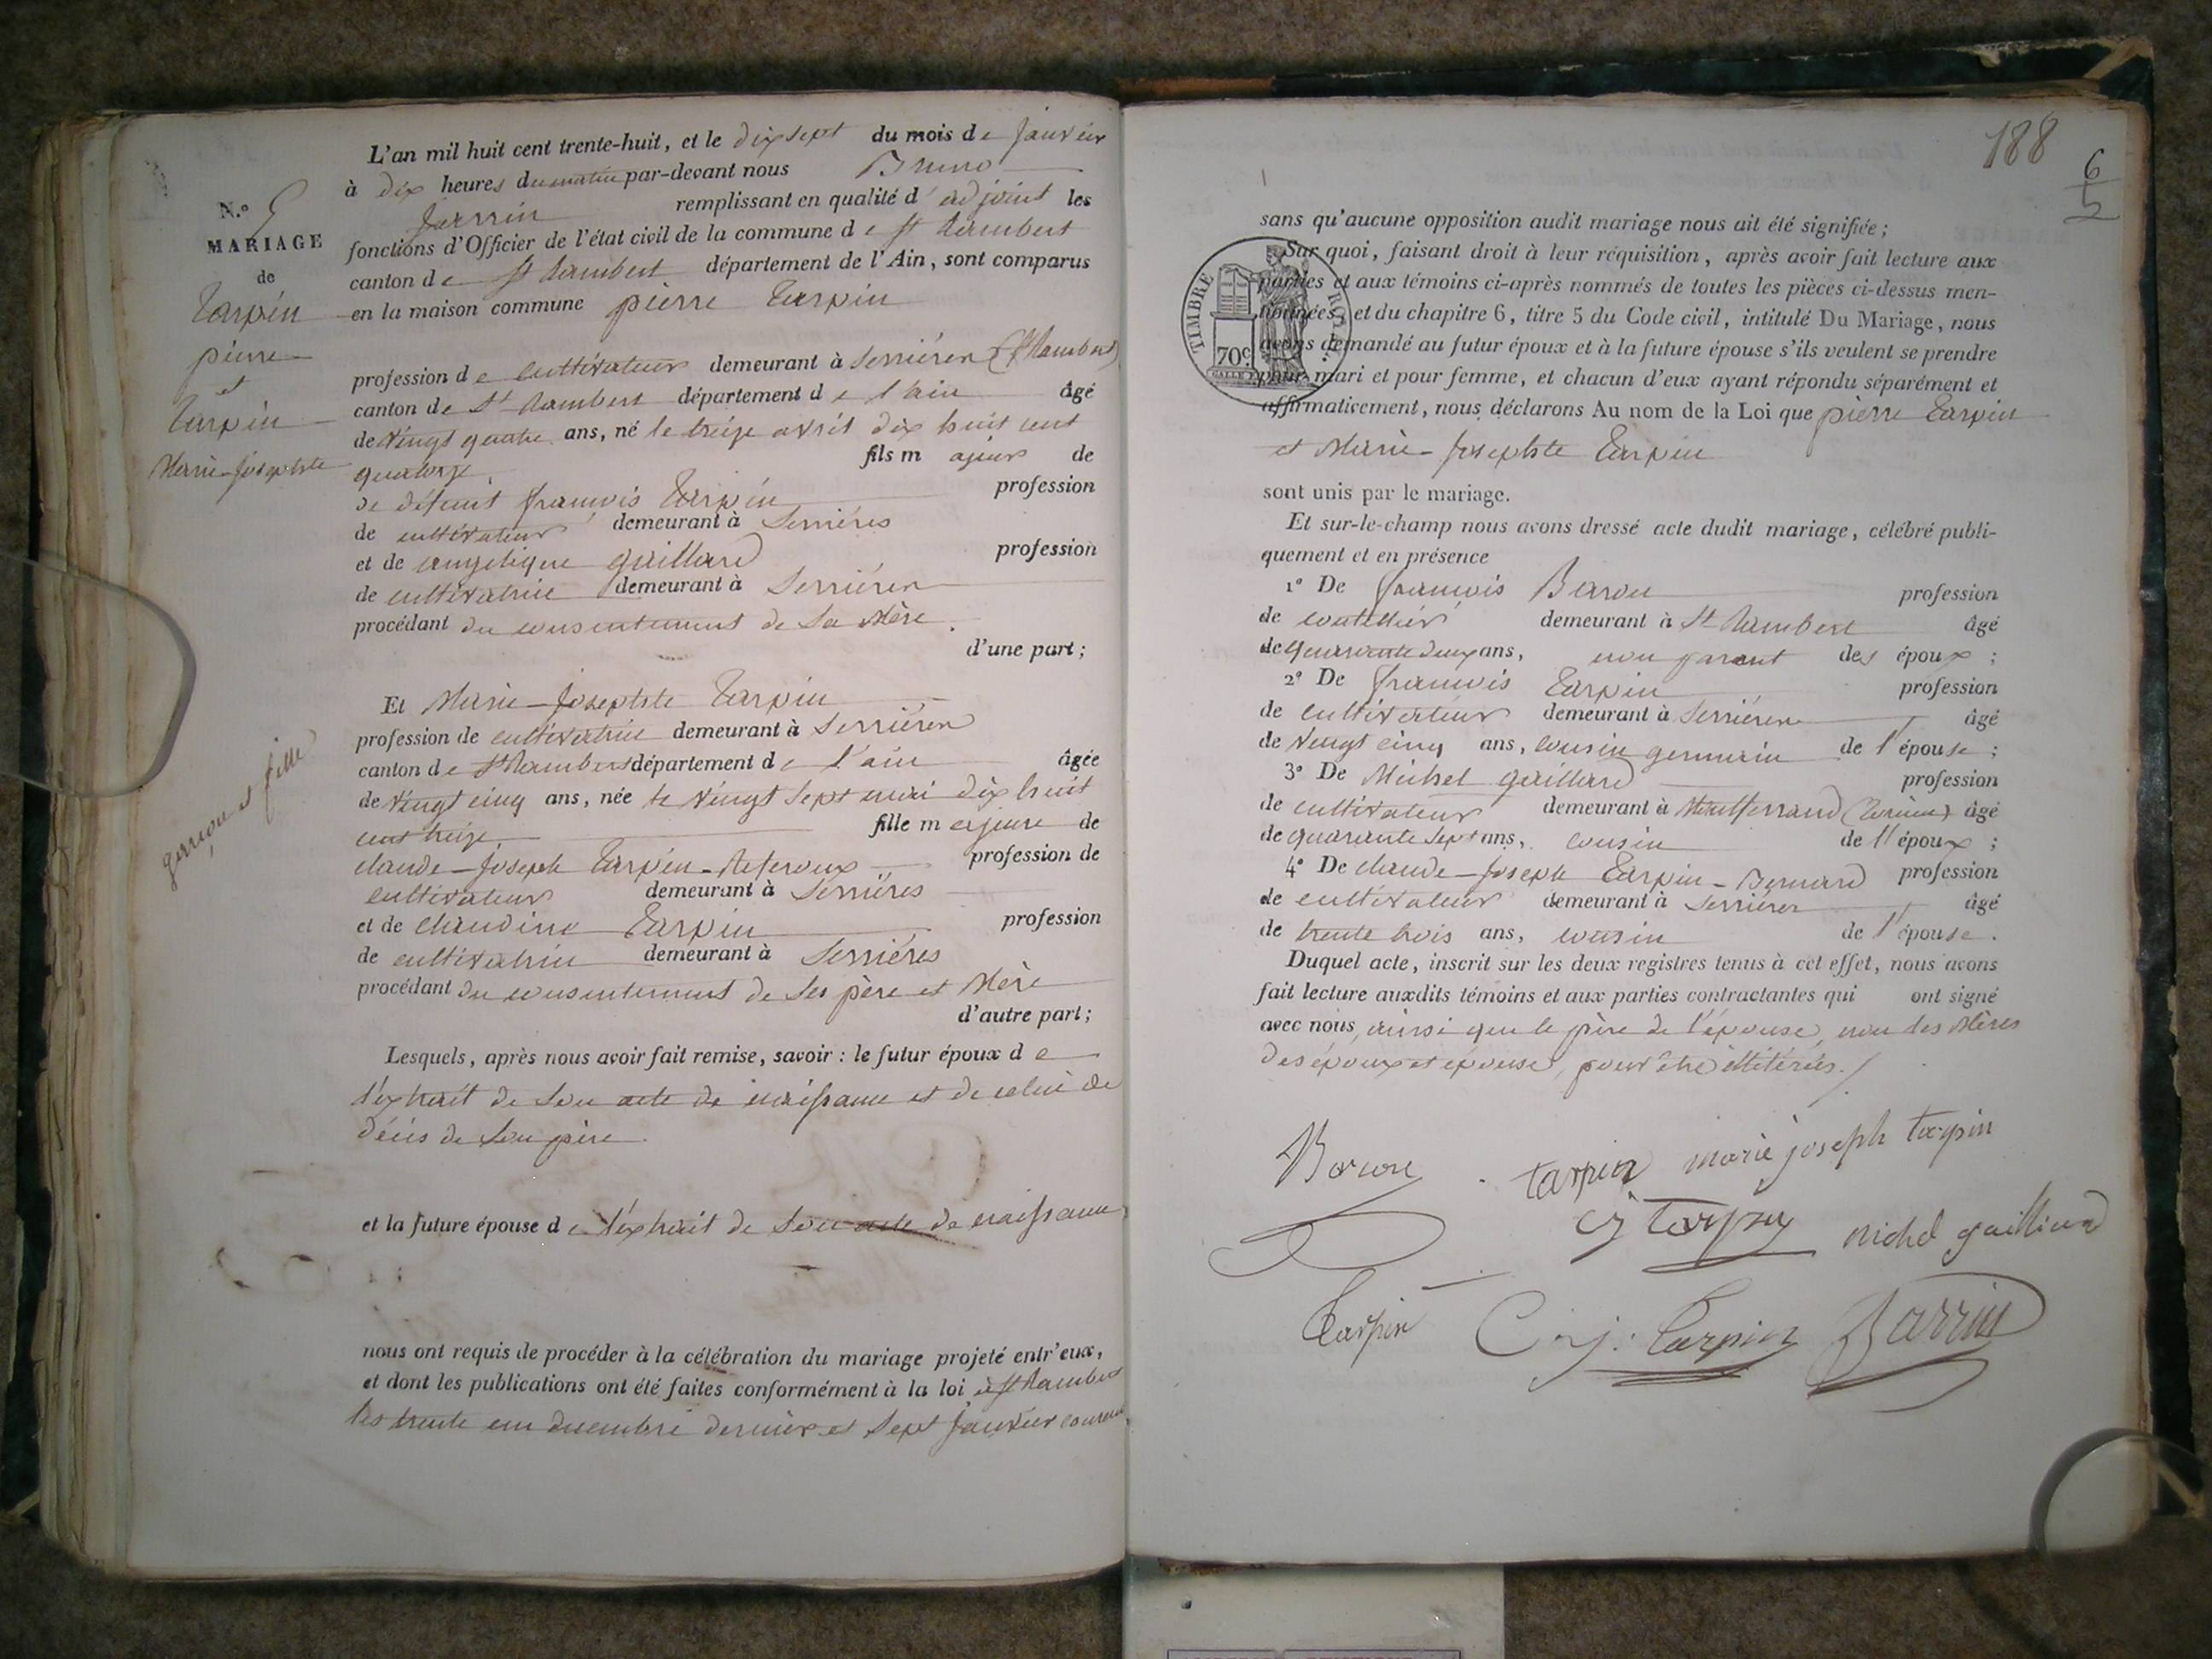 L'an mil huit cent trente-huit, et le dix sept du mois de janvier
à dix heures du matin par-devant nous Bruno
Jarrin remplissant en qualité d'adjoint les
fonctions d'Officier de l'état civil de la commune de St Rambert
canton de St Rambert département de l'Ain, sont comparus
en la maison commune pierre Tarpin
profession de cultivateur demeurant à Serrières (St Rambert)
canton de St Rambert département de l'ain âgé
de vingt quatre ans, né le treize avril dix huit cent
quatorze, fils majeur de
de défunt françois Tarpin profession
de cultivateur demeurant à Serrières
et de angelique gaillard profession
de cultivatrice demeurant à Serrières
procédant du consentement de sa Mère.
d'une part;
N.° 5
MARIAGE
de
Tarpin
pierre
et
Tarpin
Marie-Josephte
garçon et fille
Et Marie-Josephte Tarpin
profession de cultivatrice demeurant à Serrières
canton de St Rambert département de l'ain âgée
de vingt cinq ans, née le vingt sept mai dix huit
cent treize fille majeure de
claude-Joseph Tarpin- profession de
cultivateur demeurant à Serrières
et de claudine Tarpin profession
de cultivatrice demeurant à Serrières
procédant du consentement de ses père et Mère
d'autre part;
Lesquels, après nous avoir fait remise, savoir : le futur époux de
l'extrait de son acte de naissance et de celui de
décès de son père
et la future épouse de l'extrait de son acte de naissance,
nous ont requis de procéder à la célébration du mariage projeté entr'eux,
et dont les publications ont été faites conformément à la loi à St Rambert
les trente un decembre dernier et sept janvier courant,
188
6
5
sans qu'aucune opposition audit mariage nous ait été signifiée;
Sur quoi, faisant droit à leur réquisition, après avoir fait lecture aux
parties et aux témoins ci-après nommés de toutes les pièces ci-dessus men-
tionnées, et du chapitre 6, titre 5 du Code civil, intitulé Du Mariage, nous
avons demandé au futur époux et à la future épouse s'ils veulent se prendre
pour mari et pour femme, et chacun d'eux ayant répondu séparément et
affirmativement, nous déclarons Au nom de la Loi que pierre Tarpin
et Marie-Josephte Tarpin
TIMBRE ROYAL
70c
sont unis par le mariage.
Et sur-le-champ nous avons dressé acte dudit mariage, célébré publi-
quement et en présence
1° De françois Barou profession
de coutellier demeurant à St Rambert âgé
de quarante deux ans, non parent des époux;
2° De françois Tarpin profession
de cultivateur demeurant à Serrières âgé
de vingt cinq ans, cousin germain de l'épouse;
3° De Michel gaillard profession
de cultivateur demeurant à Montferrand (Torcieu) âgé
de quarante sept ans, cousin de l'époux;
4° De claude-Joseph Tarpin-Bernard profession
de cultivateur demeurant à Serrières âgé
de trente trois ans, cousin de l'épouse.
Duquel acte, inscrit sur les deux registres tenus à cet effet, nous avons
fait lecture auxdits témoins et aux parties contractantes qui ont signé
avec nous, ainsi que le père de l'épouse, non les Mères
des époux et épouse, pour être illitérées./
Barou tarpin marie joseph tarpin
cj tarpin michel gailliard
Tarpin C. j: Tarpin Jarrin